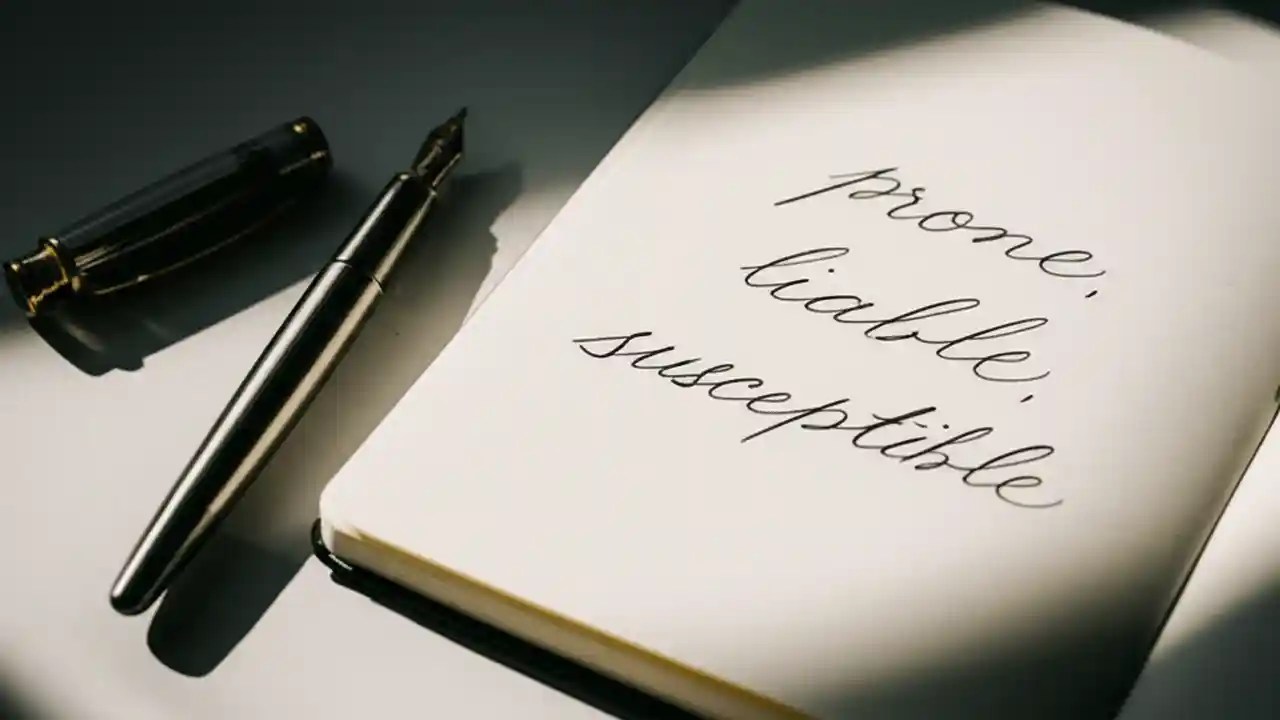 prone,
liable,
susceptible